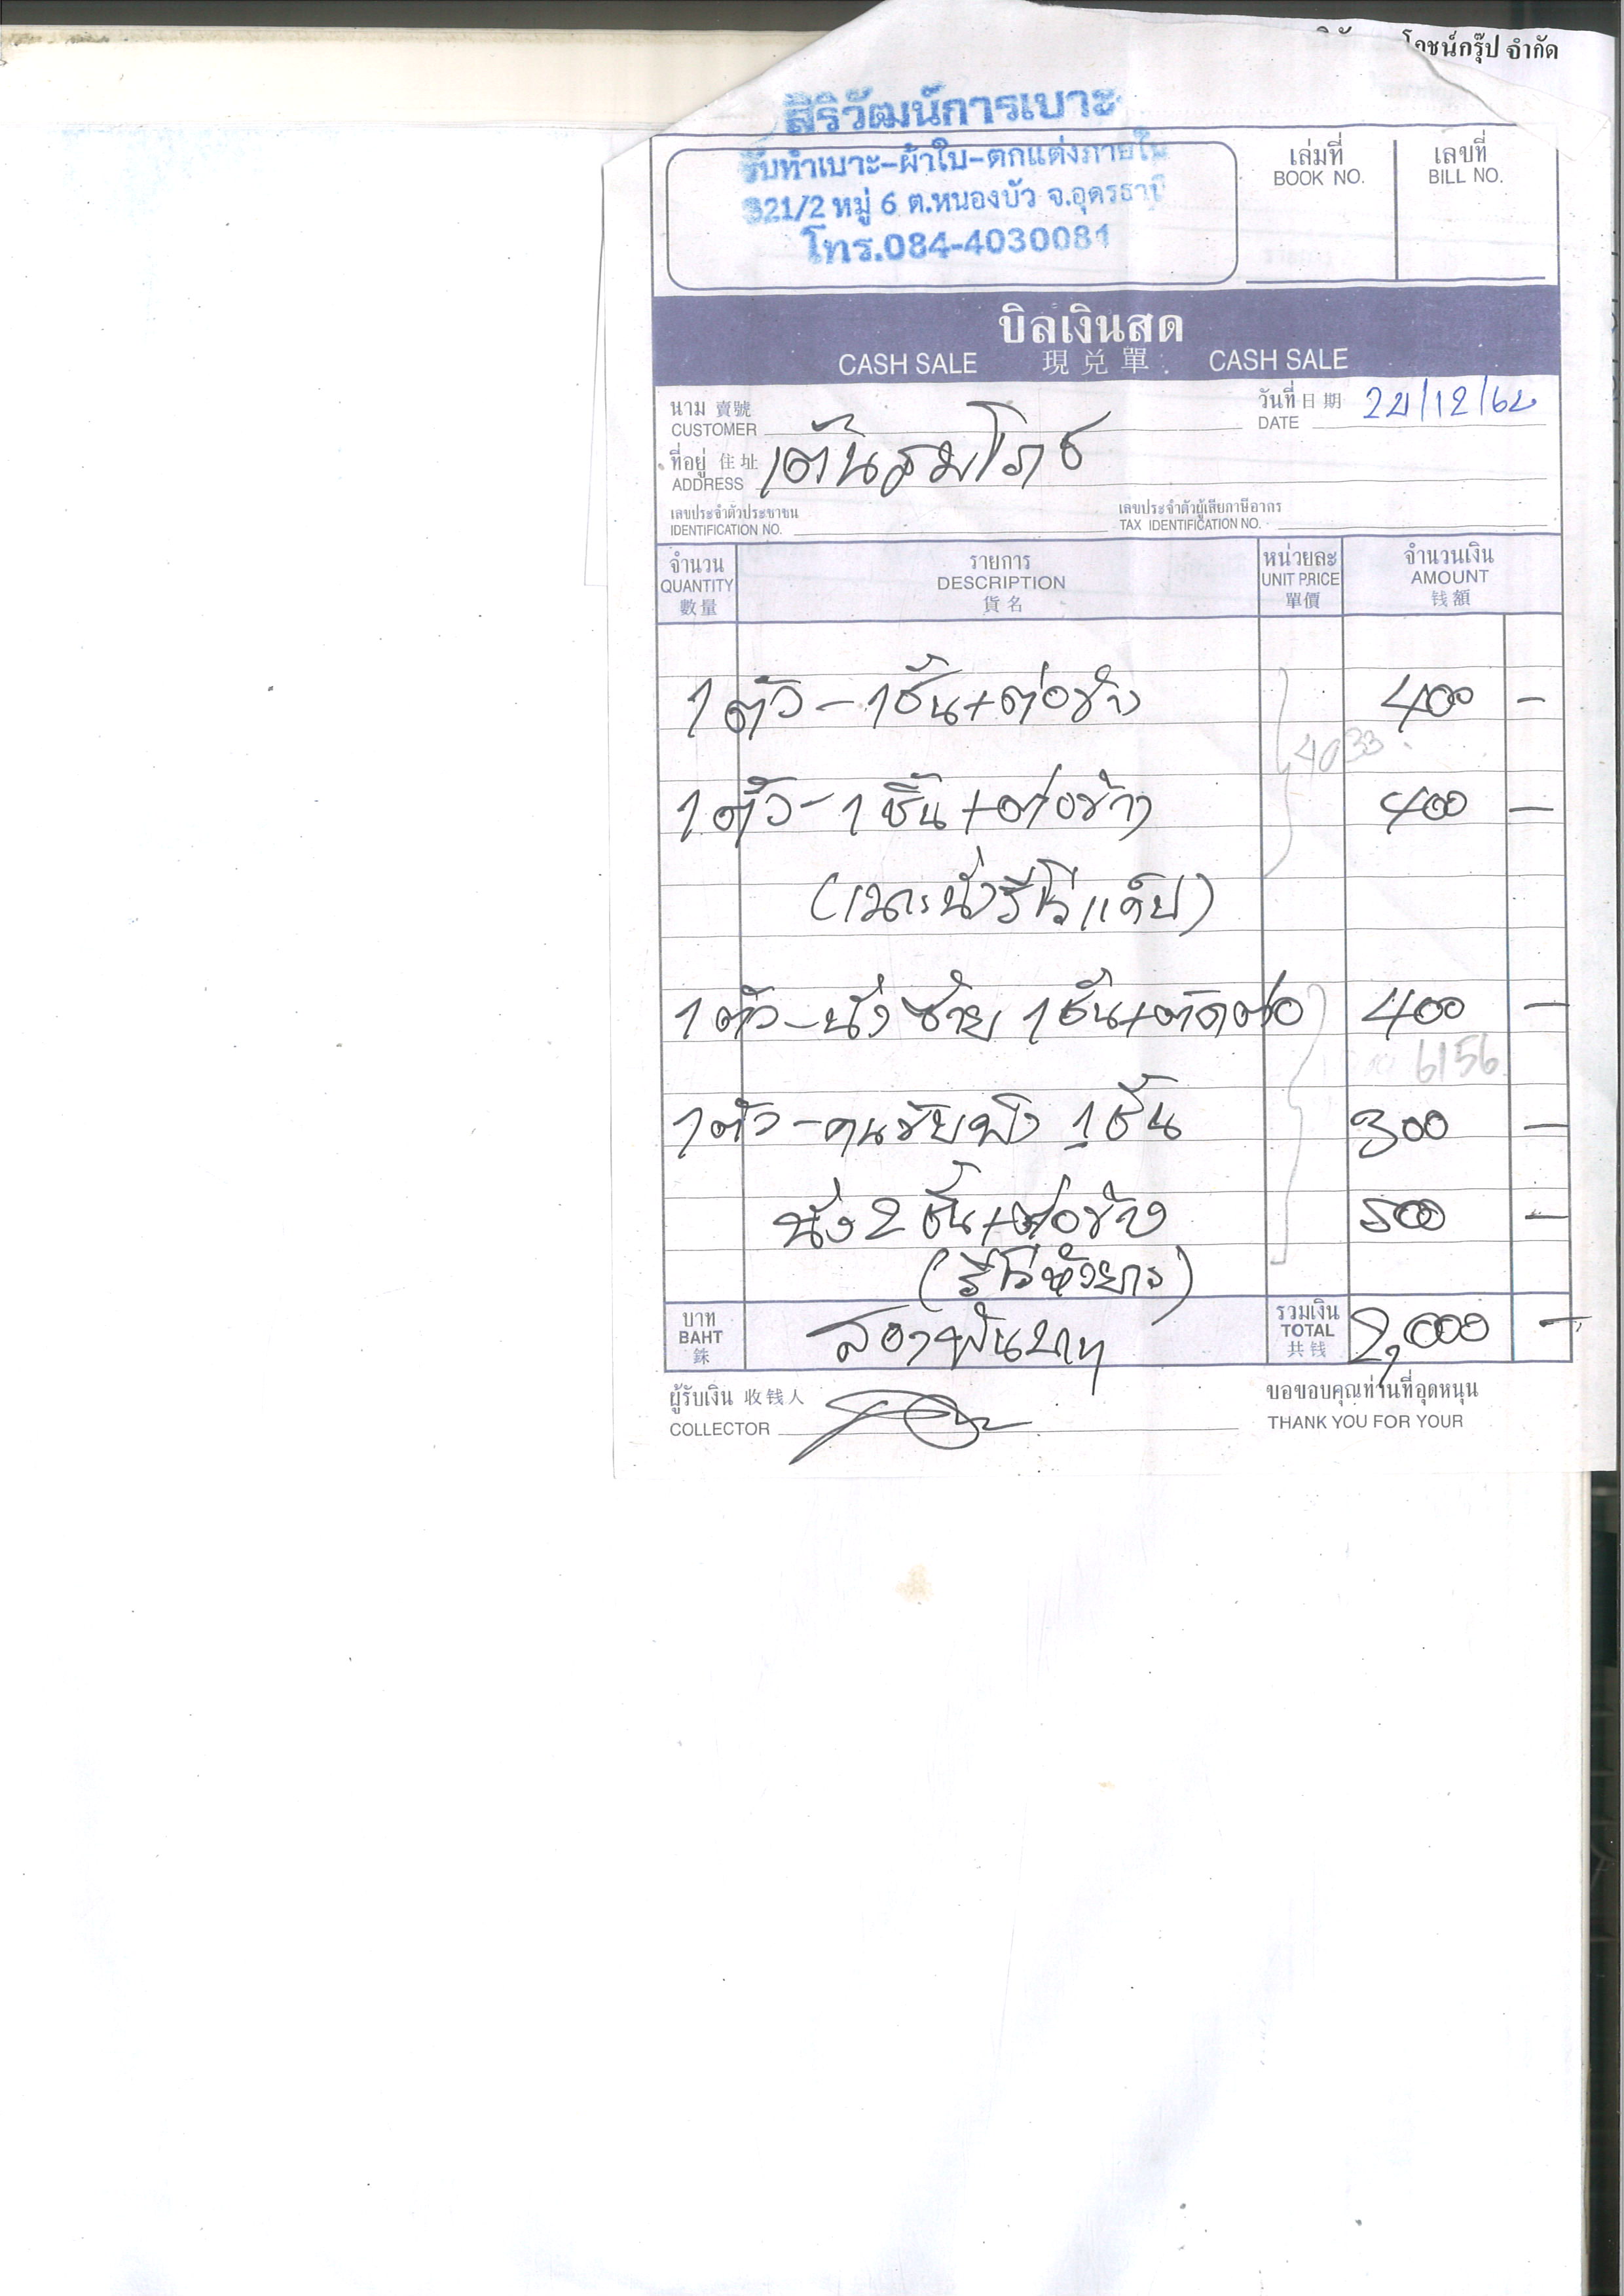 โภชน์กรุ๊ป จำกัด
สิริวัฒน์การเบาะ
รับทำเบาะ-ผ้าใบ-ตกแต่งภายใน
321/2 หมู่ 6 ต.หนองบัว จ.อุดรธานี
โทร.084-4030081
เล่มที่ เลขที่
BOOK NO. BILL NO.
บิลเงินสด
CASH SALE 現兌單 CASH SALE
นาม 賣號 วันที่ 日期
CUSTOMER DATE /12/62
ที่อยู่ 住址 เต้นสมโภช
ADDRESS
เลขประจำตัวประชาชน เลขประจำตัวผู้เสียภาษีอากร
IDENTIFICATION NO. TAX IDENTIFICATION NO.
จำนวน รายการ หน่วยละ จำนวนเงิน
QUANTITY DESCRIPTION UNIT PRICE AMOUNT
數量 貨名 單價 钱額
1 ตัว - 1 ชิ้น + ต่อข้าง 400 -
4033
1 ตัว - 1 ชิ้น + ต่อข้าง 400 -
(เบาะนั่งรีโว่แค็ป)
1 ตัว - นั่งซ้าย 1 ชิ้น + ตัดต่อ 400 -
6156
1 ตัว - คนขับพิง 1 ชิ้น 300 -
นั่ง 2 ชิ้น + ต่อข้าง 500 -
บาท สองพันบาท รวมเงิน 2,000 -
BAHT TOTAL
銖 共钱
ผู้รับเงิน 收钱人 ขอขอบคุณท่านที่อุดหนุน
COLLECTOR THANK YOU FOR YOUR